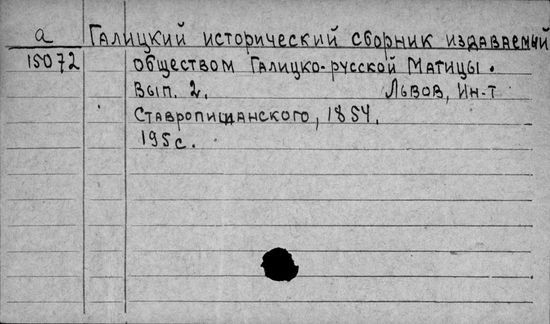 а Галицкий исторический сборник издаваемый
15072 обществом Галицко-русской Матицы.
Вып. 2. Львов, Ин-т
Ставропигианского, 1854.
195 с.